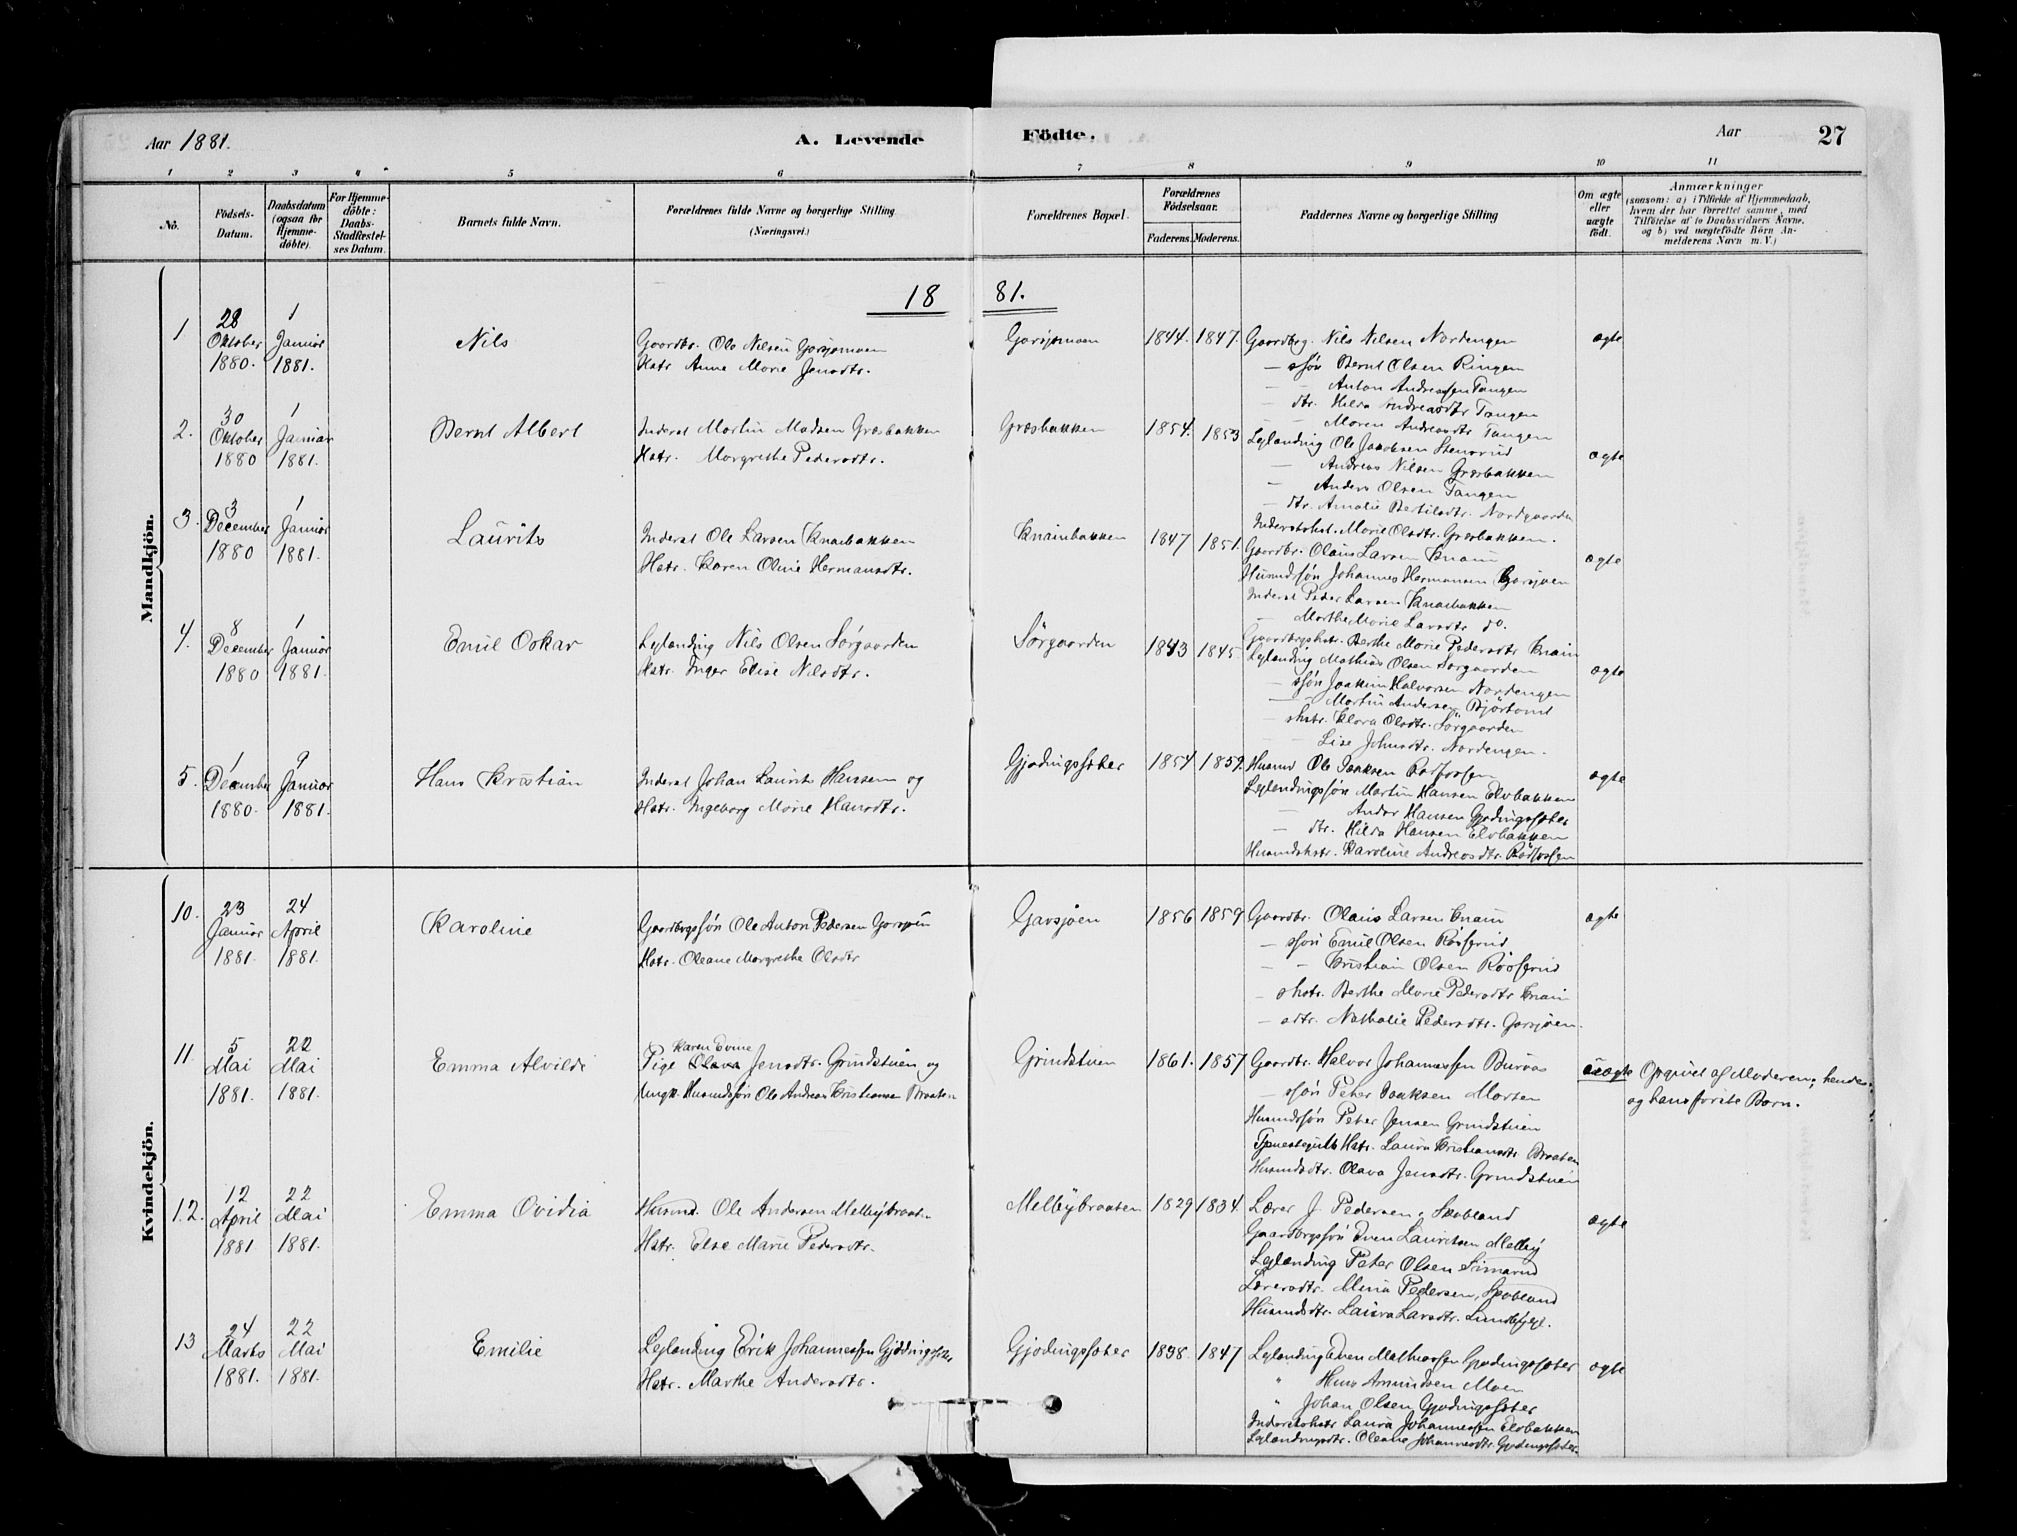 Aar 1881. A. Levende Födte. Aar 27
1 2 3 4 5 6 7 8 9 10 11
No. Födsels-Datum. Daabsdatum (ogsaa for Hjemme-döbte). For Hjemme-döbte: Daabs-Stadfæstel-ses Datum. Barnets fulde Navn. Forældrenes fulde Navne og borgerlige Stilling (Næringsvei.) Forældrenes Bopæl. Forældrenes Födselsaar. Faderens. Moderens. Faddernes Navne og borgerlige Stilling Om ægte eller uægte födt. Anmærkninger (saasom: a) i Tilfælde af Hjemmedaab, hvem der har forrettet samme, med Tilförelse af to Daabsvidners Navne, og b) ved uægtefödte Börn An-melderens Navn m. V.)
Mandkjön.
1881.
1. 28 Oktober 1880. 1 Januar 1881. Nils
Gaardbr. Ole Nilsen Garsjømoen
Hstr. Anne Marie Jensdtr.
Garsjømoen 1844. 1847.
Gaardbrg. Nils Nilsen Nordengen
— søn Bernt Olsen Ringen
— Anton Andreassen Tangen
— dtr. Hilda Andreasdtr Tangen
— Maren Andreasdtr Tangen
ægte
2. 30 Oktober 1880 1 Januar 1881. Bernt Albert
Inderst Martin Madsen Græsbakken
Hstr. Margrethe Pedersdtr.
Græsbakken 1854. 1853
Leylænding Ole Jacobsen Stensrud
— Andreas Nilsen Græsbakken
— Anders Olsen Tangen
— dtr. Amalie Bertilsdtr. Nordgaarden
Inderstshst. Marie Olsdtr. Græsbakken.
ægte
3. 3 December 1880 1 Januar 1881. Laurits
Inderst Ole Larsen Knaibakken
Hstr. Karen Oline Hermansdtr.
Knaibakken 1847 1851.
Gaardbr. Olaus Larsen Knain
Husmdsøn Johannes Hermansen Garsjøen
Inderst Peder Larsen Knaibakken
— Marthe Marie Larsdtr do.
Gaardbrgshstr. Berthe Marie Pedersdtr Knain
ægte
4. 8 December 1880 1 Januar 1881. Emil Oskar
Leylænding Nils Olsen Sørgaarden
Hstr. Inger Elise Nilsdtr.
Sörgaarden 1843 1845
Leylænding Mathias Olsen Sørgaarden
— søn Joakim Halvorsen Nordengen
— Martin Andersen Bjørtomt
— shstr. Klara Olsdtr. Sørgaarden
Lise Johnsdtr. Nordengen.
ægte
5. 1 December 1880. 9 Januar 1881. Hans Kristian
Inderst Johan Laurits Hansen og
Hstr. Ingeborg Marie Hansdtr.
Gjødingssæter 1854 1859.
Husmd Ole Isaksen Rødfossen
Leylændingssøn Martin Hansen Elvbakken
— Anders Hansen Gjødingssæter
— dtr. Hilda Hansen Elvbakken
Husmdshstr. Karoline Andreasdtr. Rødfossen
ægte
Kvindekjön.
10. 23 Januar 1881. 24 April 1881. Karoline
Gaardbrgssøn Ole Anton Pedersen Garsjøen
Hstr. Oleane Margrethe Olsdtr
Garsjøen 1856 1859
Gaardbr. Olaus Larsen Knain
— søn Emil Olsen
— — Kristian Olsen
— shstr. Berthe Marie Pedersdtr Knain
— sdtr. Nathalie Pedersdtr. Garsjøen.
ægte
11. 5 Mai 1881. 22 Mai 1881. Emma Alvilde
Karen Evine
Pige Olava Jensdtr. Grindstuen og
Ungk. Husmdssøn Ole Andreas Kristiansen Braaten
Grindstuen 1861. 1857
Gaardbr. Halvor Johannessen Buraas
— søn Peter Isaksen Morten
Husmdssøn Peter Jensen Grindstuen
Hstr. Laura Kristiansdtr Braaten
Husmdsdtr. Olava Jensdtr. Grindstuen
uægte Opgivet af Moderen; hendes
og hans første Barn.
12. 12 April 1881 22 Mai 1881. Emma Ovidia
Husmd. Ole Andersen Melbybraaten
Hstr. Else Marie Pedersdtr.
Melbybraaten 1829 1834.
Lærer J. Pedersen, Skobland
Gaardbrgssøn Even Lauritsen Melby
Leylænding Peter Olsen Simarud
Lærersdtr. Mina Pedersen, Skobland
Husmdsdtr. Laura Larsdtr.
ægte
13 24 Marts 1881. 22 Mai 1881. Emilie
Leylænding Erik Johannessen Gjødingssæter
Hstr. Marthe Andersdtr.
Gjødingssæter 1838. 1847
Leylænding Even Mathiassen Gjødingssæter
" Hans Amundsen Moen
" Johan Olsen Gjødingssæter
Inderstshstr Laura Johannessen Elvbakken
Leylændingsdtr. Oleane Johannesdtr. Gjødingssæter.
ægte